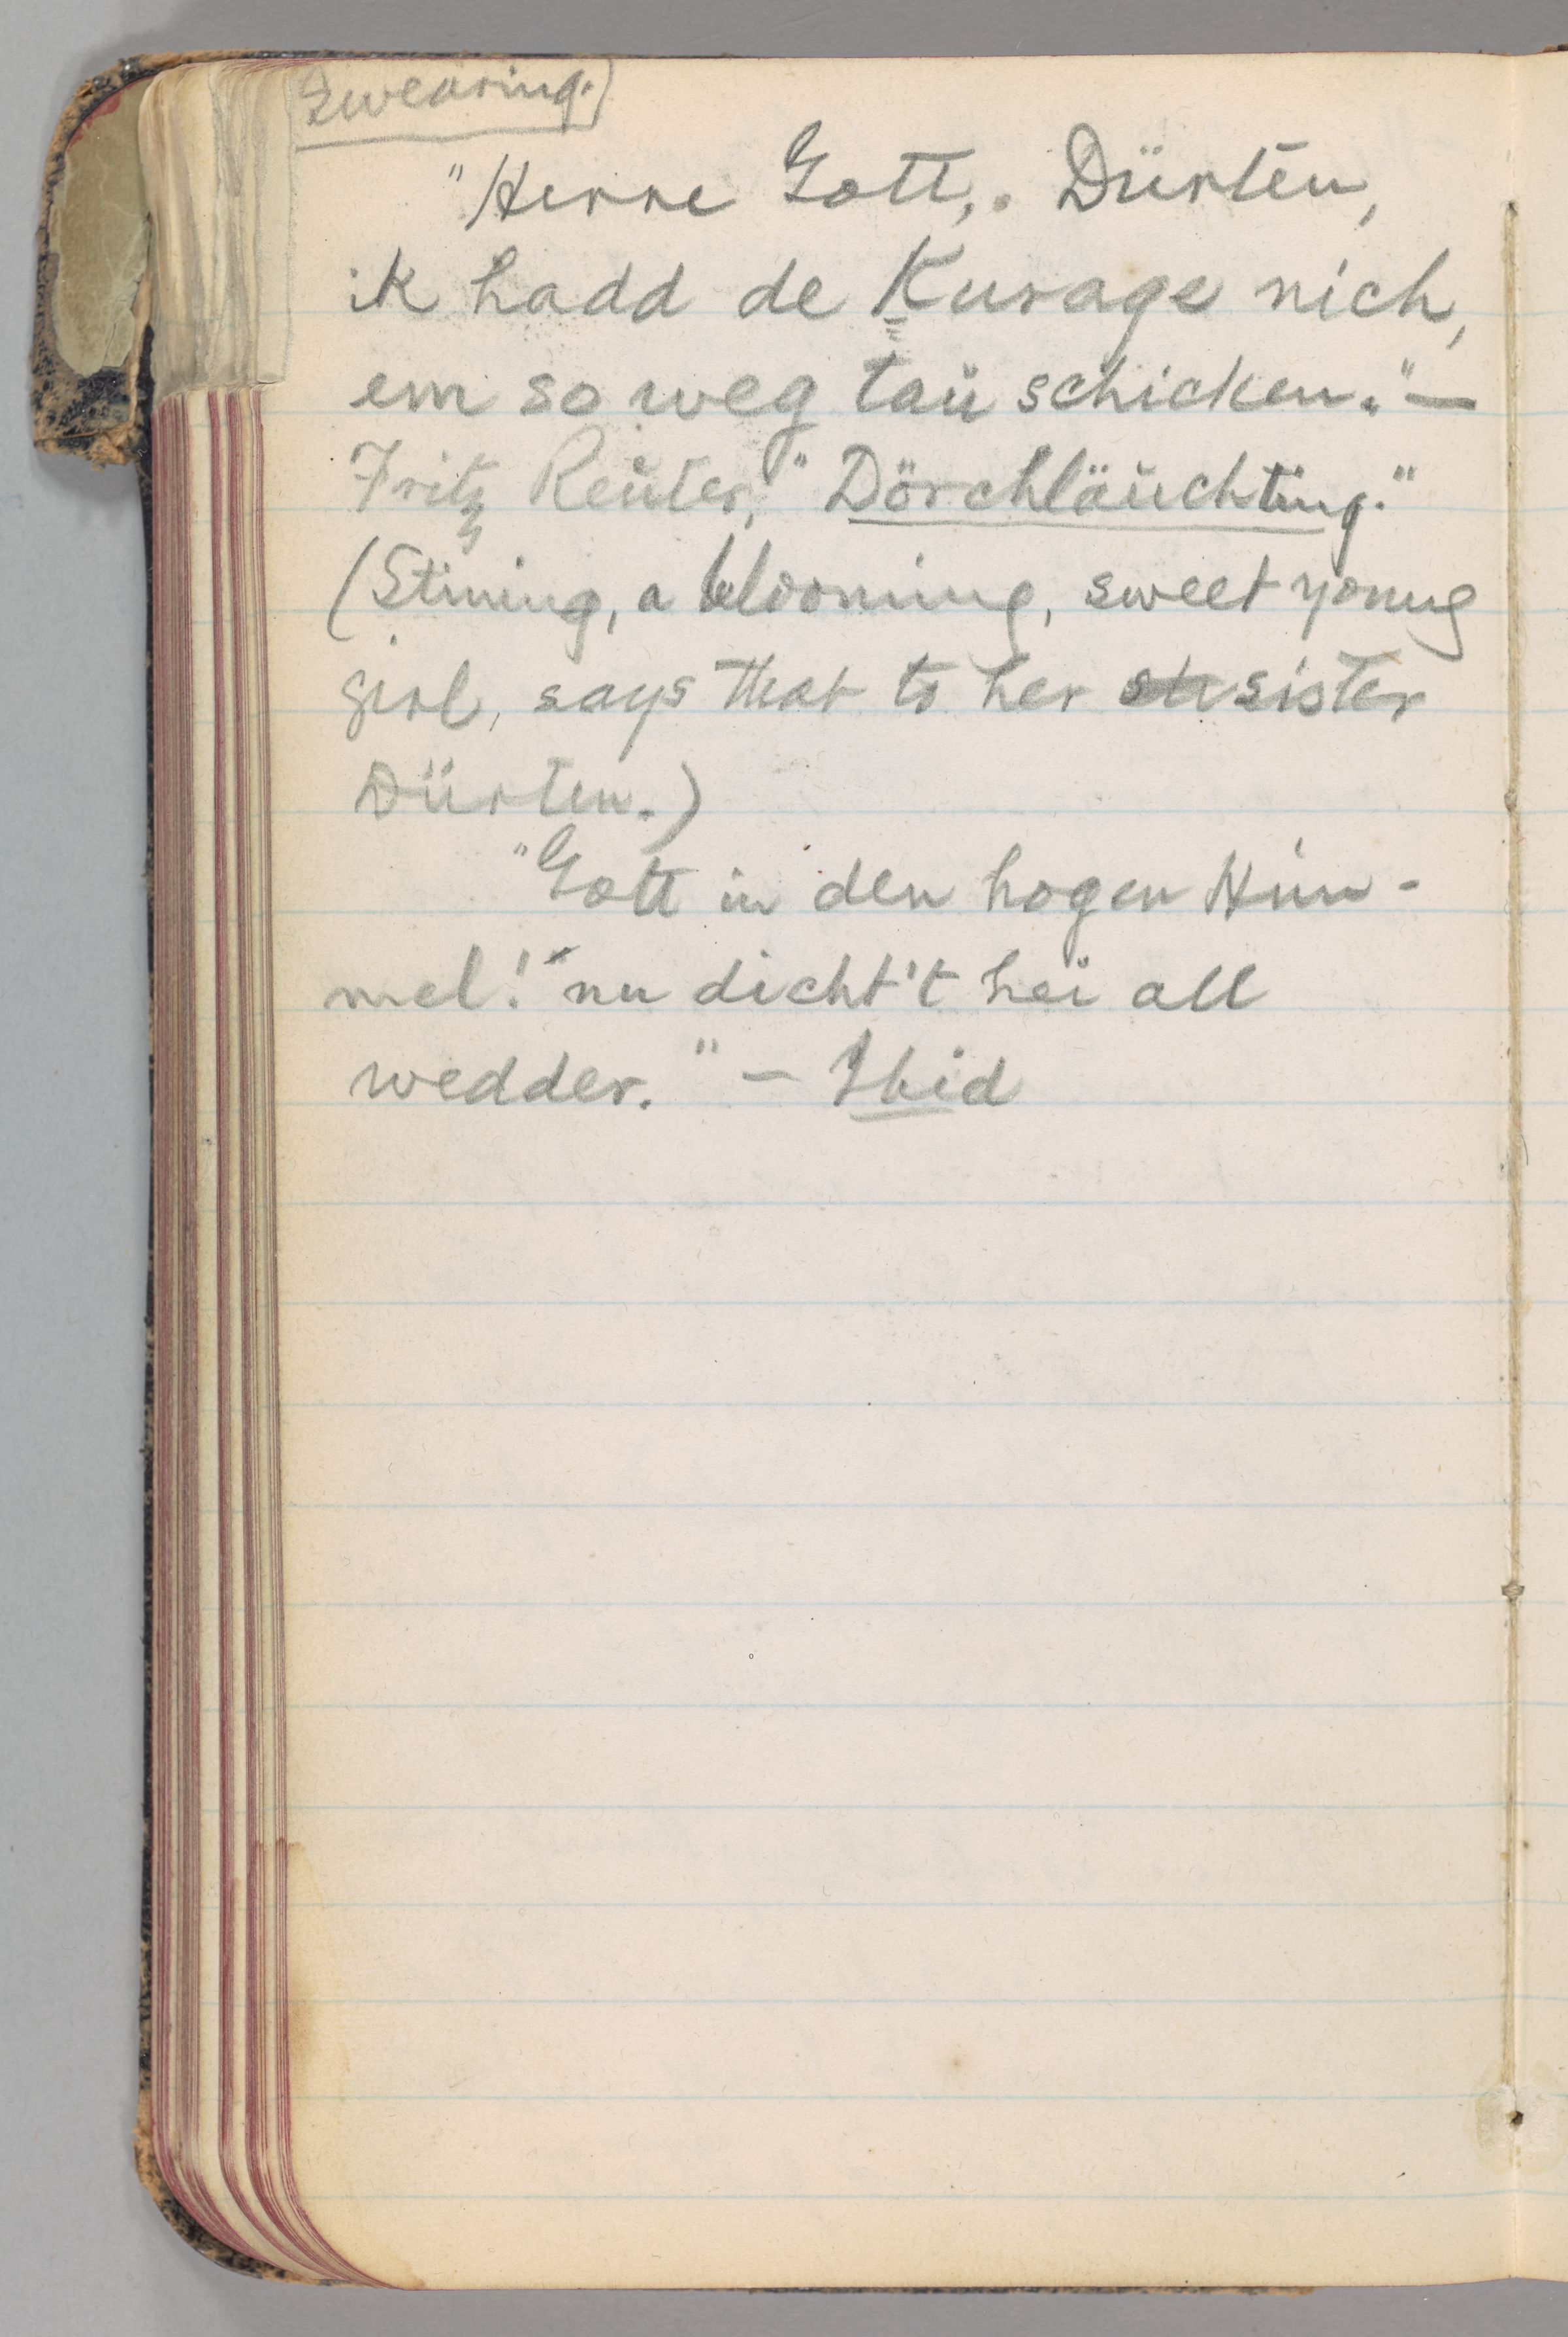 Swearing.)
"Herre Gott,. Dürten,
ik hadd de Kurage nich,
em so weg tau schicken."—
Fritz Reuter, "Dörchläuchting."
(Stining, a blooming, sweet young
girl, says that to her sister
Dürten.)
"Gott in den hogen Him-
mel! nu dicht't hei all
wedder." — Ibid